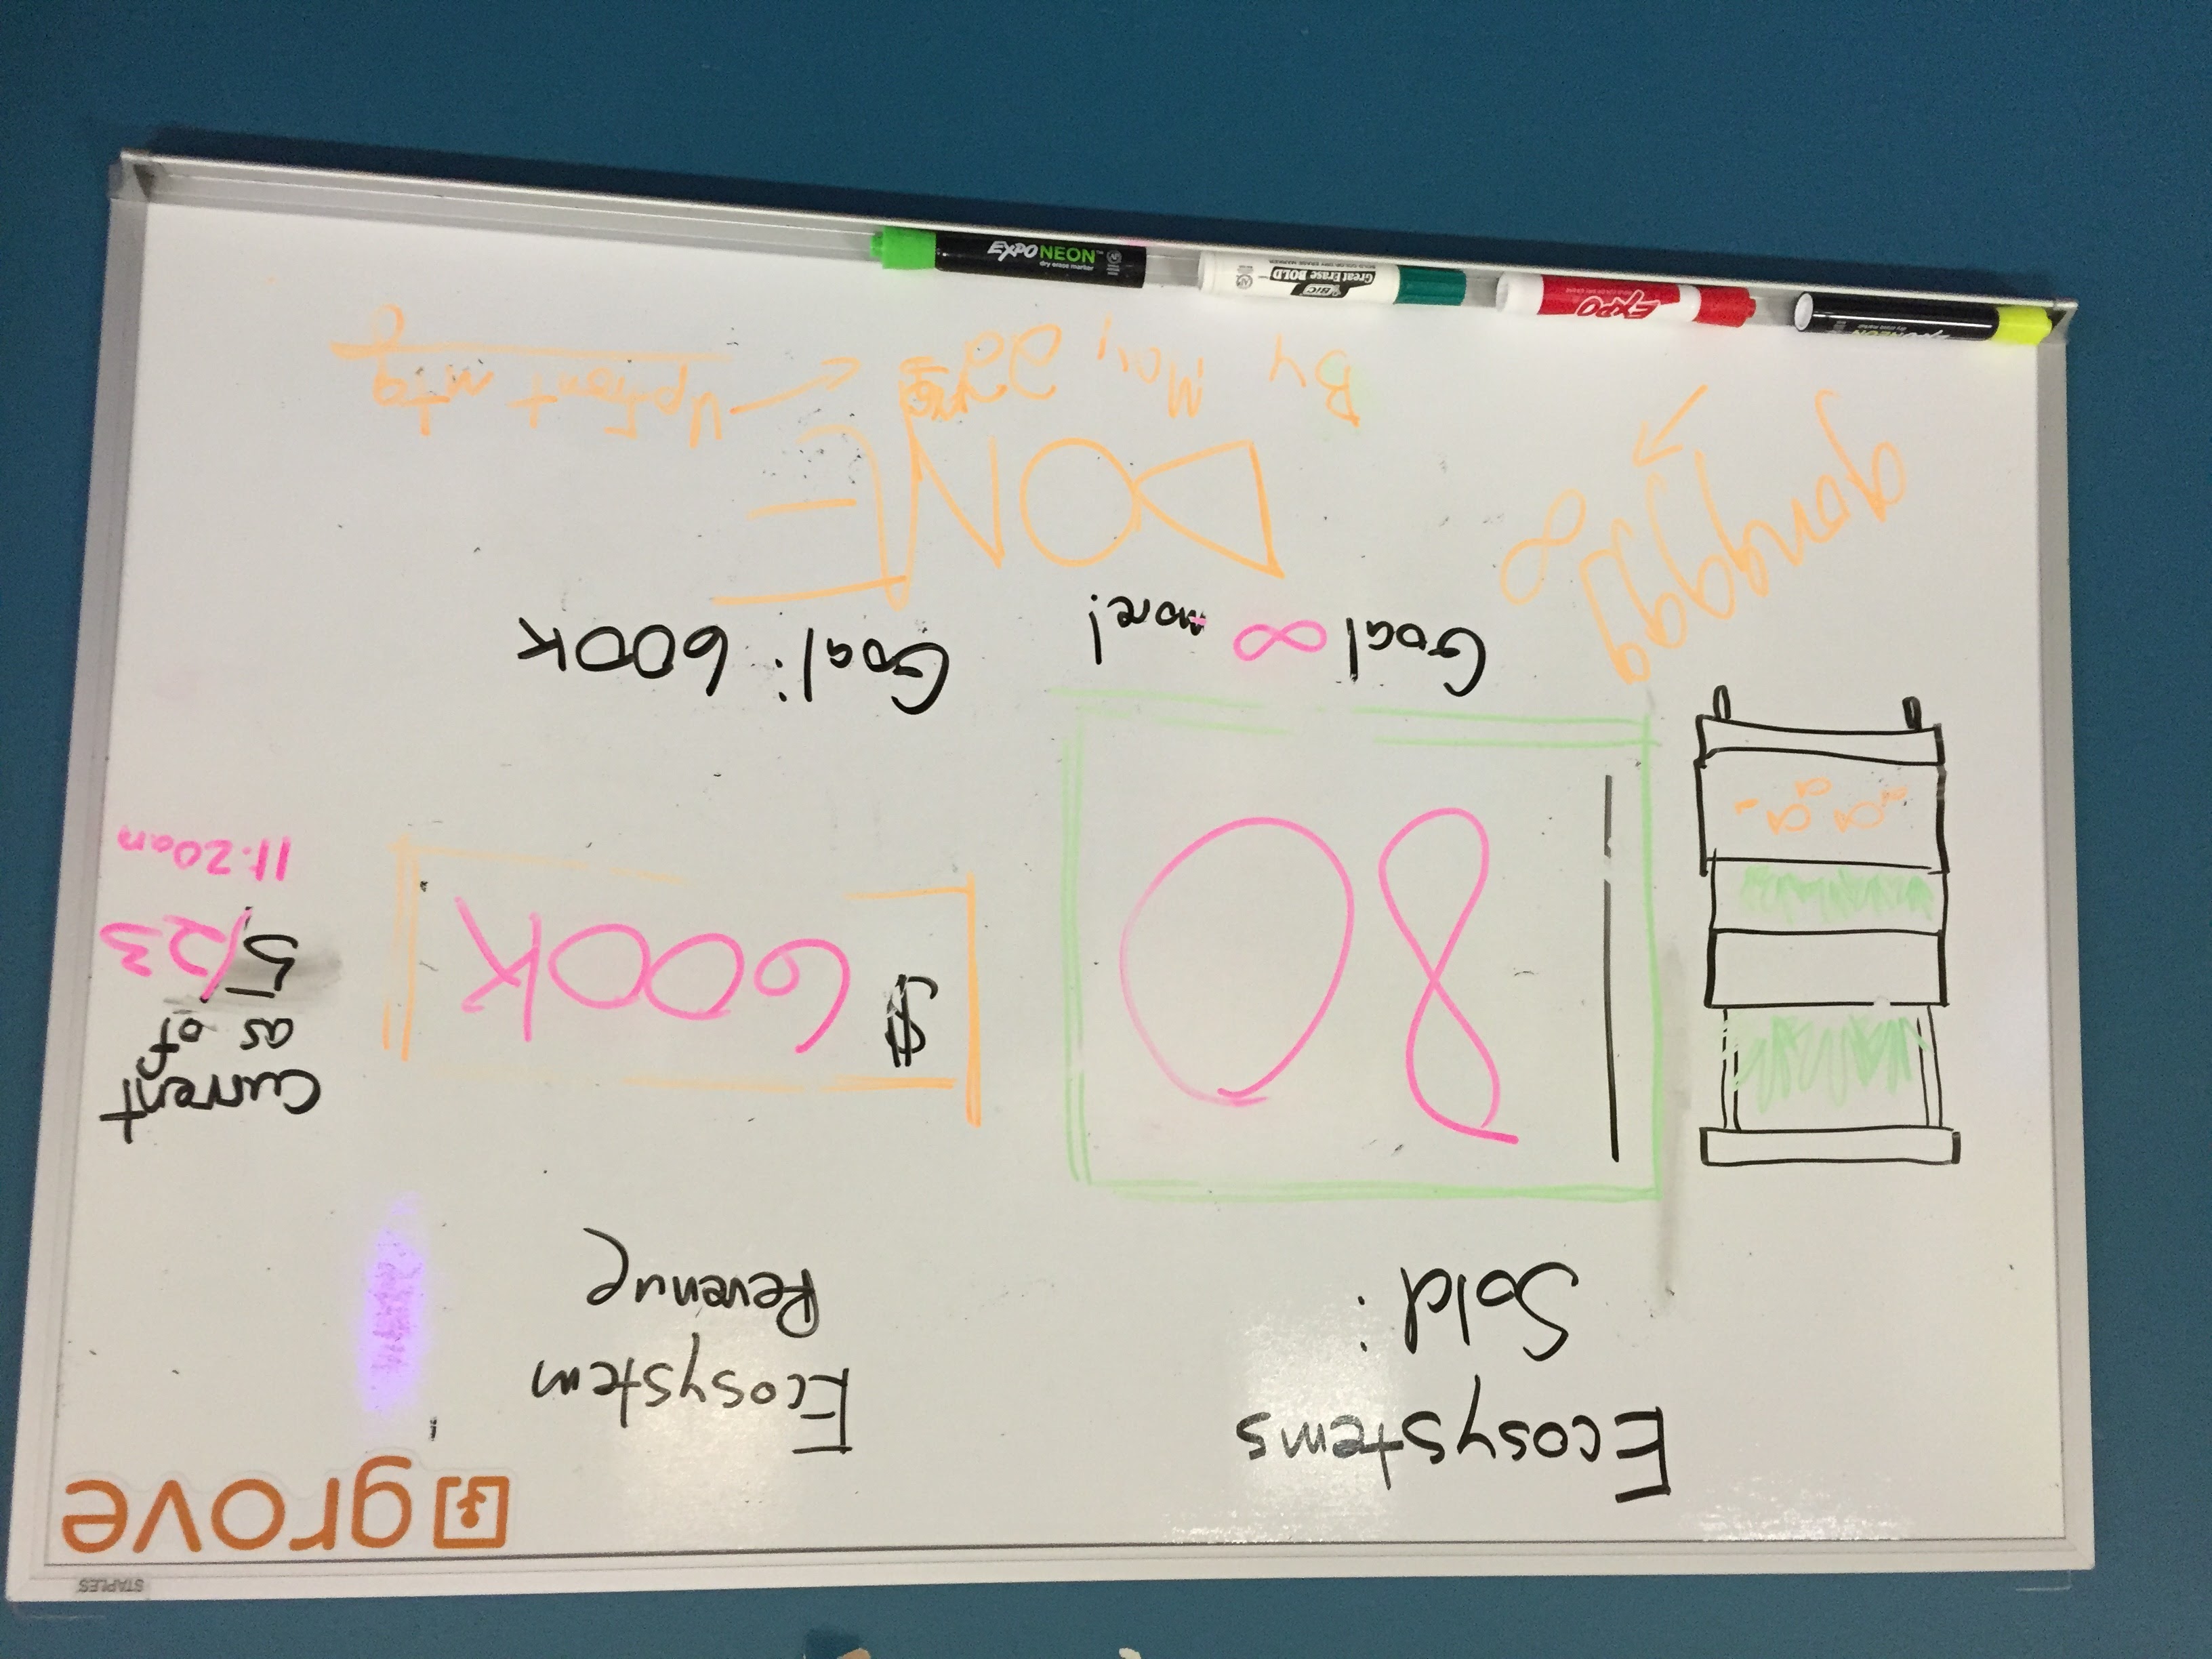 grove
Ecosystems
Sold:
80
Goal ∞ more!
Ecosystem
Revenue
$ 600K
Goal: 600K
current
as of
5/23
11:20am
DONE
By May
Upfront mtg
gongggg
EXPO NEON™
dry erase marker
BIC
Great Erase BOLD
EXPO
STAPLES